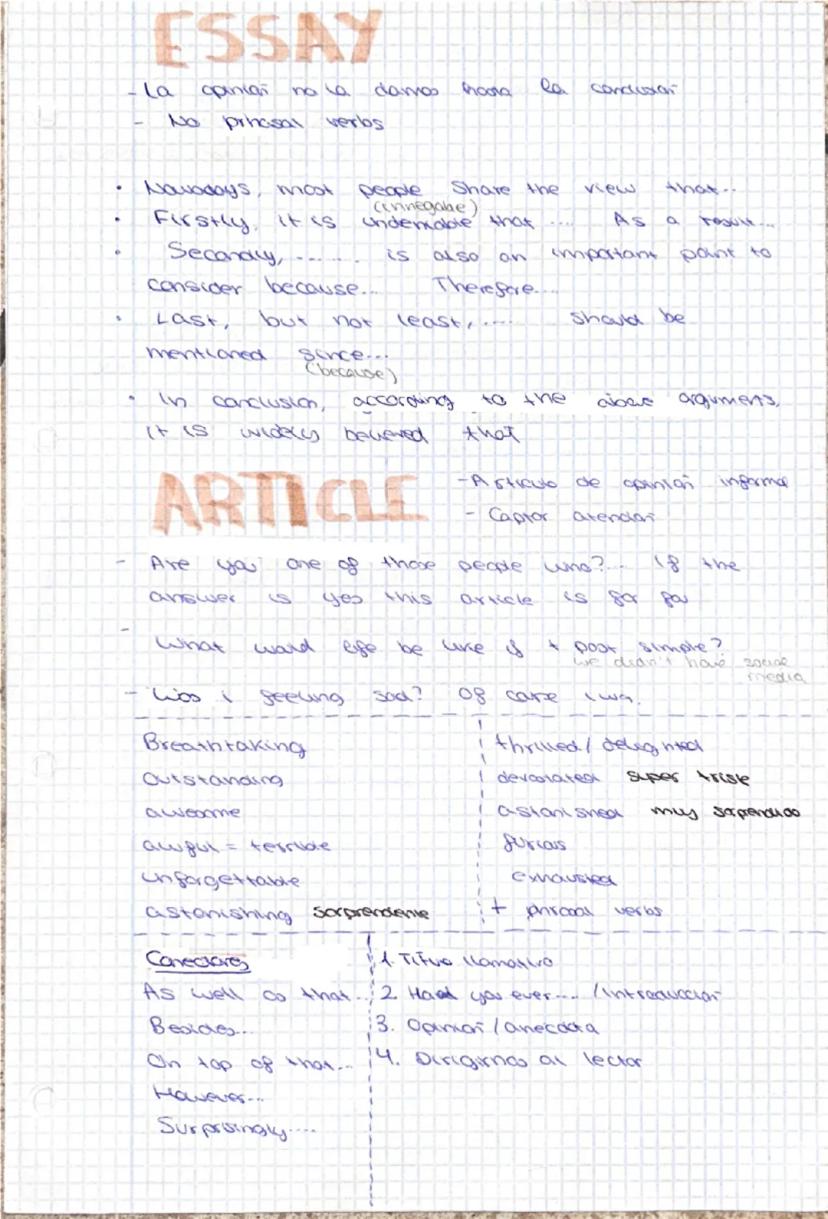 ESSAY
- La opinión no la damos hasta la conclusión
- No phrasal verbs
• Nowadays, most people share the view that...
(innegable)
• Firstly, it is undeniable that .... As a result...
• Secondly, ....... is also an important point to
consider because... Therefore....
• Last, but not least, .... should be
mentioned since...
(because)
• In conclusion, according to the above arguments,
it is widely believed that
ARTICLE
- Artículo de opinión informal
- Captar atención
- Are you one of those people who?... If the
answer is yes this article is for you
- What would life be like if + past simple?
we didn't have social
media
- Was I feeling sad? Of course I was.
Breathtaking
outstanding
awesome
awful = terrible
unforgettable
astonishing sorprendente
thrilled / delighted
devastated super triste
astonished muy sorprendido
furious
exhausted
+ phrasal verbs
Conectores
As well as that...
Besides...
On top of that...
However...
Surprisingly....
1. Título llamativo
2. Had you ever.... / Introducción
3. Opinión / anécdota
4. Dirigirnos al lector